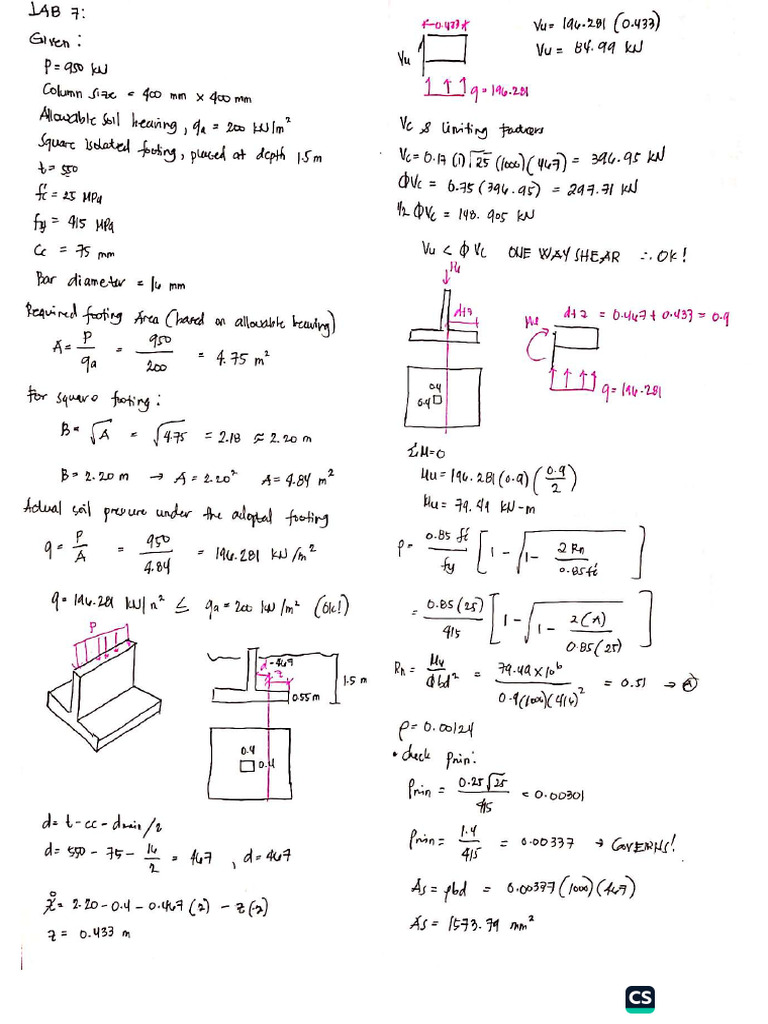 LAB 7:
Given:
P = 950 kN
Column size = 400 mm x 400 mm
Allowable soil bearing, qa = 200 kN/m²
Square isolated footing, placed at depth 1.5 m
t = 550
f'c = 25 MPa
fy = 415 MPa
Cc = 75 mm
Bar diameter = 16 mm
Required footing Area (based on allowable bearing)
A = P/qa = 950/200 = 4.75 m²
For square footing:
B = √A = √4.75 = 2.18 ≈ 2.20 m
B = 2.20 m → A = 2.20² A = 4.84 m²
Actual soil pressure under the adopted footing
q = P/A = 950/4.84 = 196.281 kN/m²
q = 196.281 kN/m² ≤ qa = 200 kN/m² (Ok!)
P
d = 467
z
1.5 m
0.55 m
0.4
0.4
d = t - cc - dmain/2
d = 550 - 75 - 16/2 = 467 , d = 467
= 2.20 - 0.4 - 0.467(2) - z(2)
z = 0.433 m
0.433
Vu
q = 196.281
Vu = 196.281 (0.433)
Vu = 84.99 kN
Vc & limiting factors
Vc = 0.17 (1) √25 (1000)(467) = 396.95 kN
ΦVc = 0.75 (396.95) = 297.71 kN
1/2 ΦVc = 148.905 kN
Vu < ΦVc ONE WAY SHEAR ∴ OK!
Mu
d+z
0.4
0.4
d+z = 0.467 + 0.433 = 0.9
Mu
q = 196.281
ΣM=0
Mu = 196.281 (0.9) (0.9/2)
Mu = 79.49 kN-m
ρ = 0.85 f'c/fy [1 - √(1 - 2Rn/0.85f'c)]
= 0.85(25)/415 [1 - √(1 - 2(A)/0.85(25))]
Rn = Mu/Φbd² = 79.49 x 10⁶/0.9(1000)(416)² = 0.51 → Ⓐ
ρ = 0.00124
• check ρmin:
ρmin = 0.25√25/415 = 0.00301
ρmin = 1.4/415 = 0.00337 → GOVERNS!
As = ρbd = 0.00337 (1000)(467)
As = 1573.79 mm²
CS